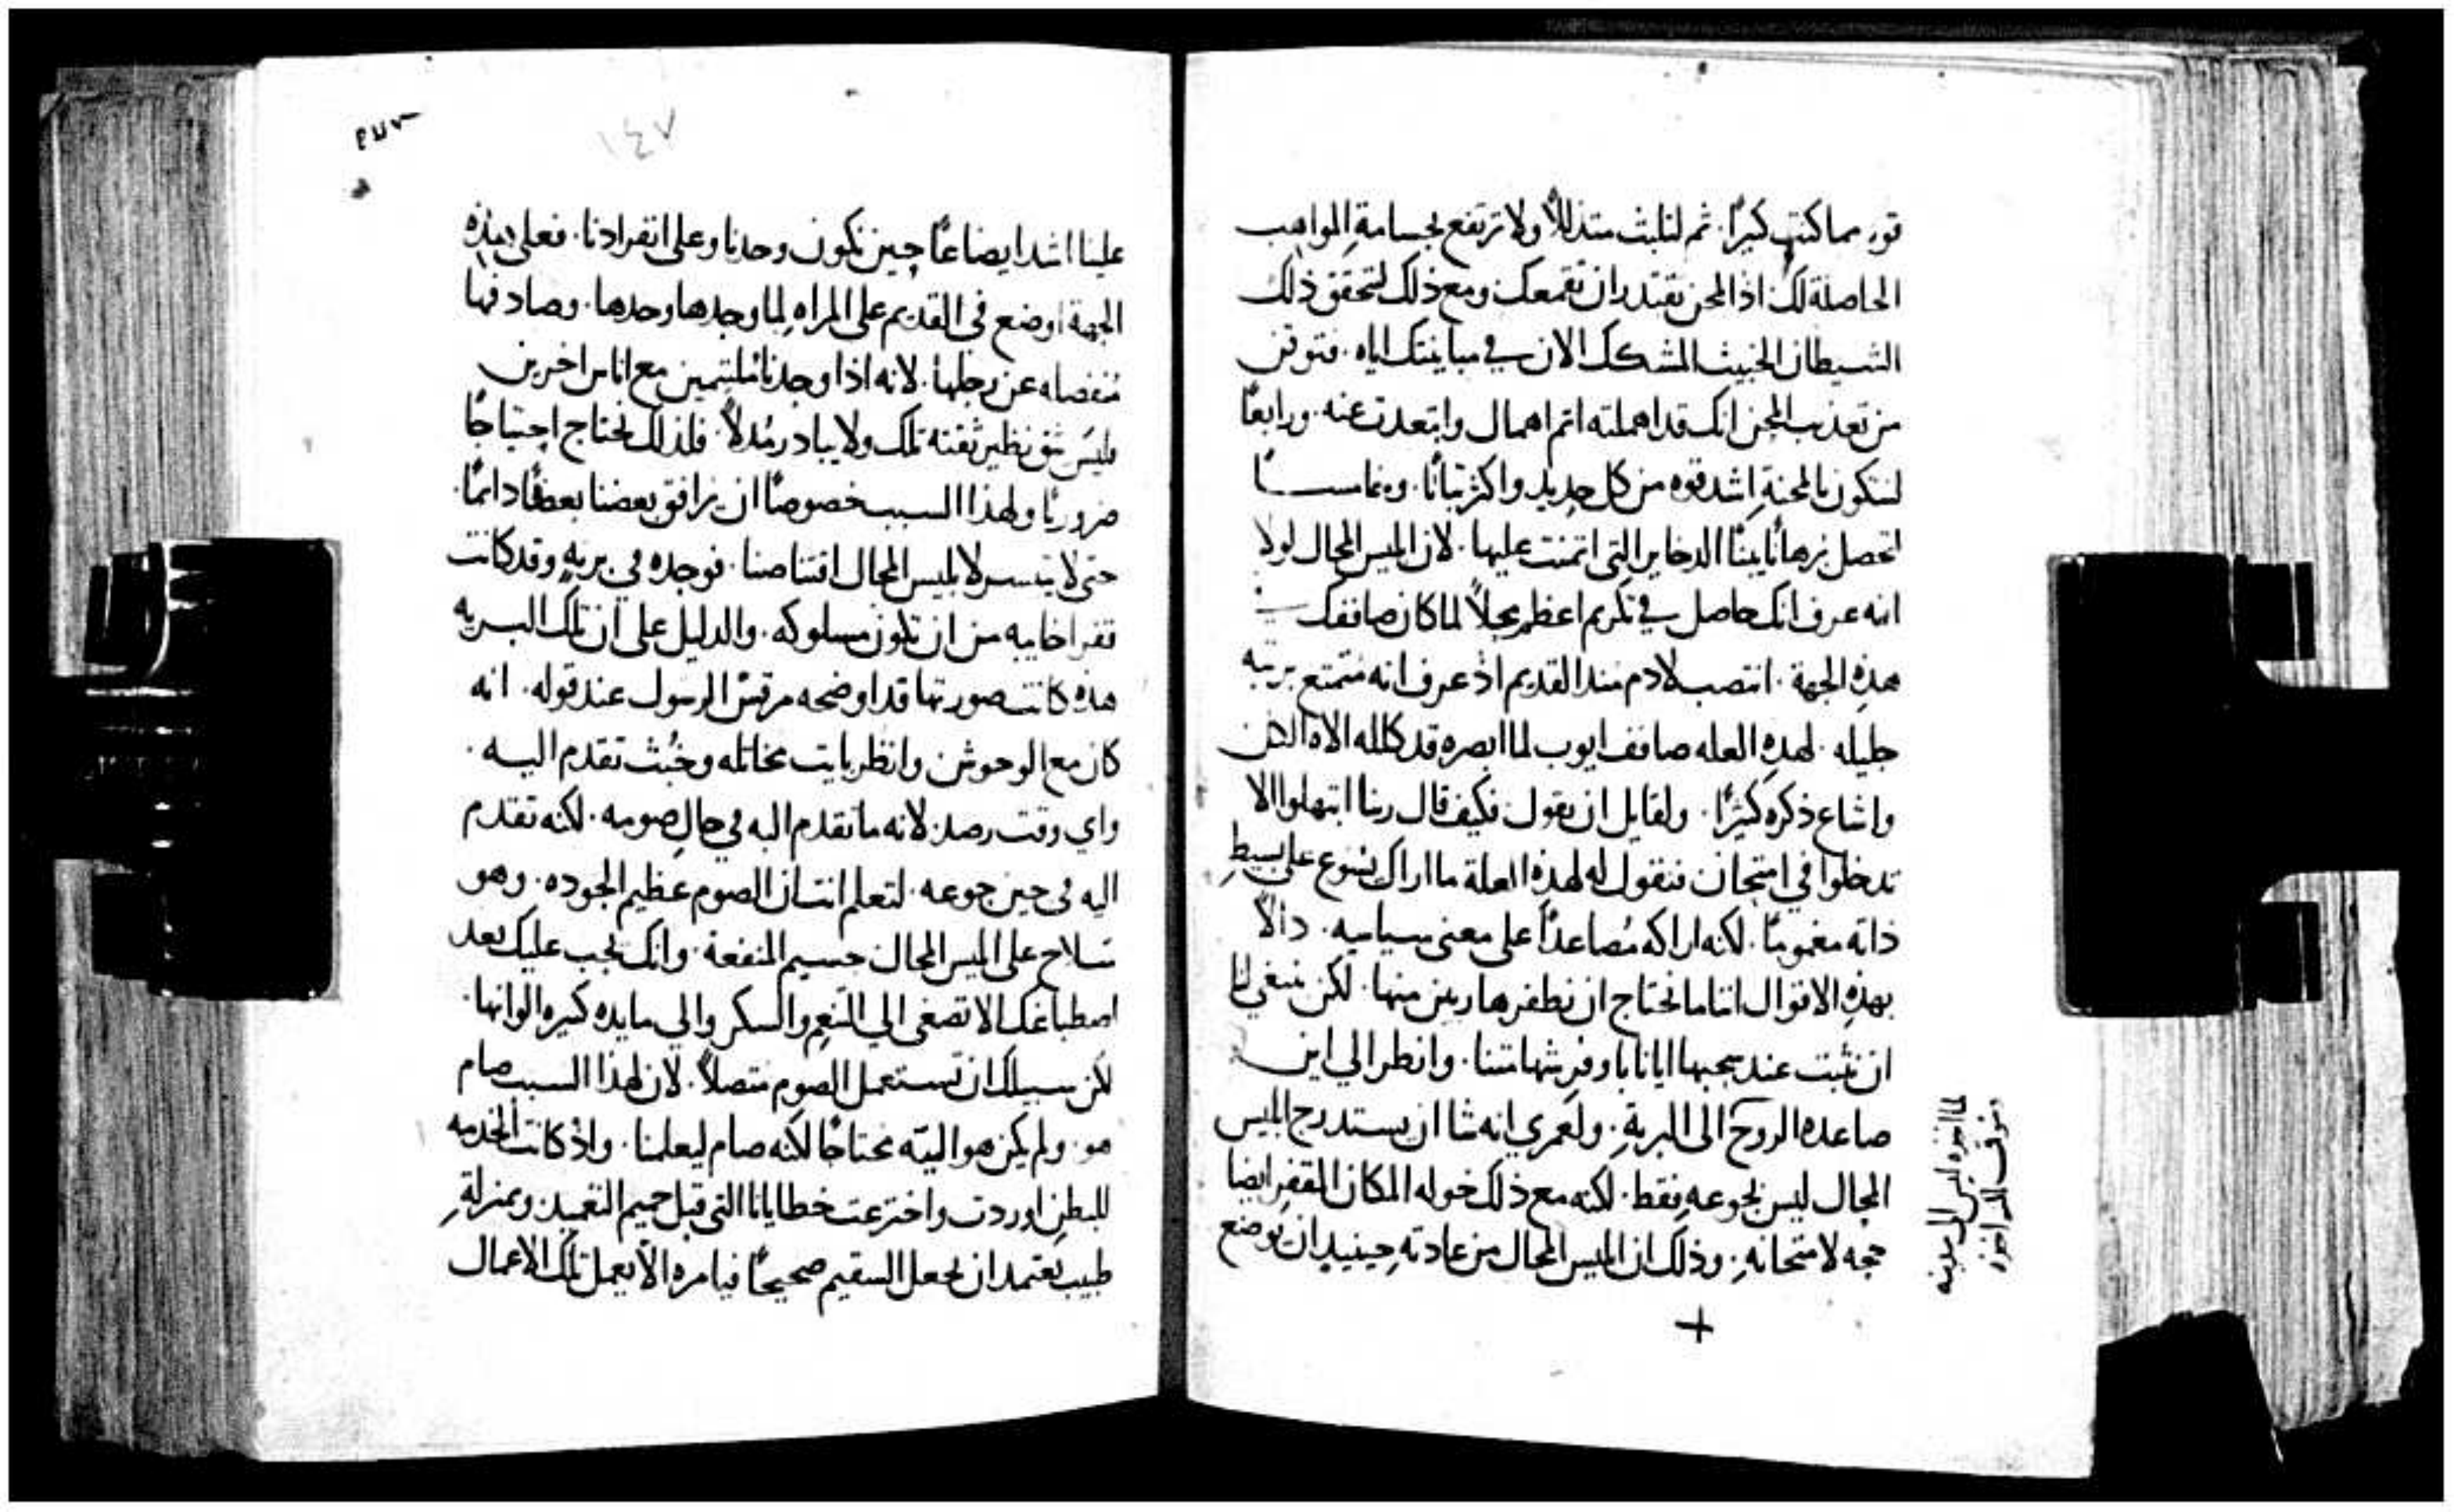 قوه مما كنت كثيرًا. ثم لتلبث متذللاً ولا ترتفع لجسامة المواهب
الحاصلة لك. اذ المحن تقتدر ان تقمعك ومع ذلك لتحقق ذلك
الشيطان الخبيث المشكك الان في مباينتك اياه. فتوقن
من تعذيب المحن انك قد اهملته اتم اهمال وابتعدت عنه. ورابعًا
لتكون بالمحنة اشد قوه من كل حديد واكثر ثباتًا. وخامسًا
لتحصل برهانًا بينًا الدخاير التي اتمنت عليها. لان ابليس المحال لولا
انه عرف انك حاصل في تكريم اعظم محلاً لما كان صاففك في
هذه الجهة. انتصب لادم منذ القديم اذ عرف انه متمتع برتبه
جليله. لهذه العله صافف ايوب لما ابصره قد كلله الاه الكل
واشاع ذكره كثيرًا. ولقايل ان يقول فكيف قال ربنا ابتهلوا الا
تدخلوا في امتحان فنقول له لهذه العلة ما اراك يسوع على بسيط
ذاته مغمومًا. لكنه اراكه مُصاعدًا على معنى سياسيه. دالاً
بهذه الاقوال اننا ما نحتاج ان نطفر هاربين منها. لكن ينبغي لنا
ان نثبت عند سحبها ايانا باوفر شهامتنا. وانظر الي اين
صاعده الروح الى البرية. ولعمري انه شا ان يستدرج ابليس
المحال ليس بجوعه فقط. لكنه مع ذلك خوله المكان القفر ايضا
حجه لامتحانه. وذلك ان ابليس المحال من عادته حينيذ ان يوضع
+
١٤٧
علينا اشد ايضاعًا حين نكون وحدنا وعلى انفرادنا. فعلى هذه
الجهة اوضع في القديم على المراه لما وجدها وحدها. وصادفها
منفصله عن رجلها. لانه اذا وجدنا ملتيمين مع اناس اخرين
فليس يثق نظير ثقته تلك ولا يبادر مُدلاً. فلذلك نحتاج احتياجًا
ضروريًا ولهذا السبب خصوصًا ان يرافق بعضنا بعضًا دايمًا.
حتى لا يتيسر لابليس المحال اقتناصنا. فوجده في بريه وقد كانت
قفرا خايبه من ان تكون مسلوكه. والدليل على ان تلك البريه
هذه كانت صورتها قد اوضحه مرقس الرسول عند قوله. انه
كان مع الوحوش وانظر بايت مخاتله وخُبث تقدم اليه.
واي وقت رصد لانه ما تقدم اليه في حال صومه. لكنه تقدم
اليه في حين جوعه. لتعلم انت ان الصوم عظيم الجوده. وهو
سلاح على ابليس المحال جسيم المنفعة. وانك يجب عليك بعد
اصطباغك الا تصغى الي التنعم والسكر والي مايده كثيره الوانها.
لكن سبيلك ان تستعمل الصوم متصلاً. لان لهذا السبب صام
هو. ولم يكن هو اليه محتاجًا لكنه صام ليعلمنا. واذ كانت الخدمه
للبطن اوردت واخترعت خطايانا التي قبل حميم التعميد وبمنزلة
طبيب يعتمد ان يجعل السقيم صحيحًا فيامره الا يعمل تلك الاعمال